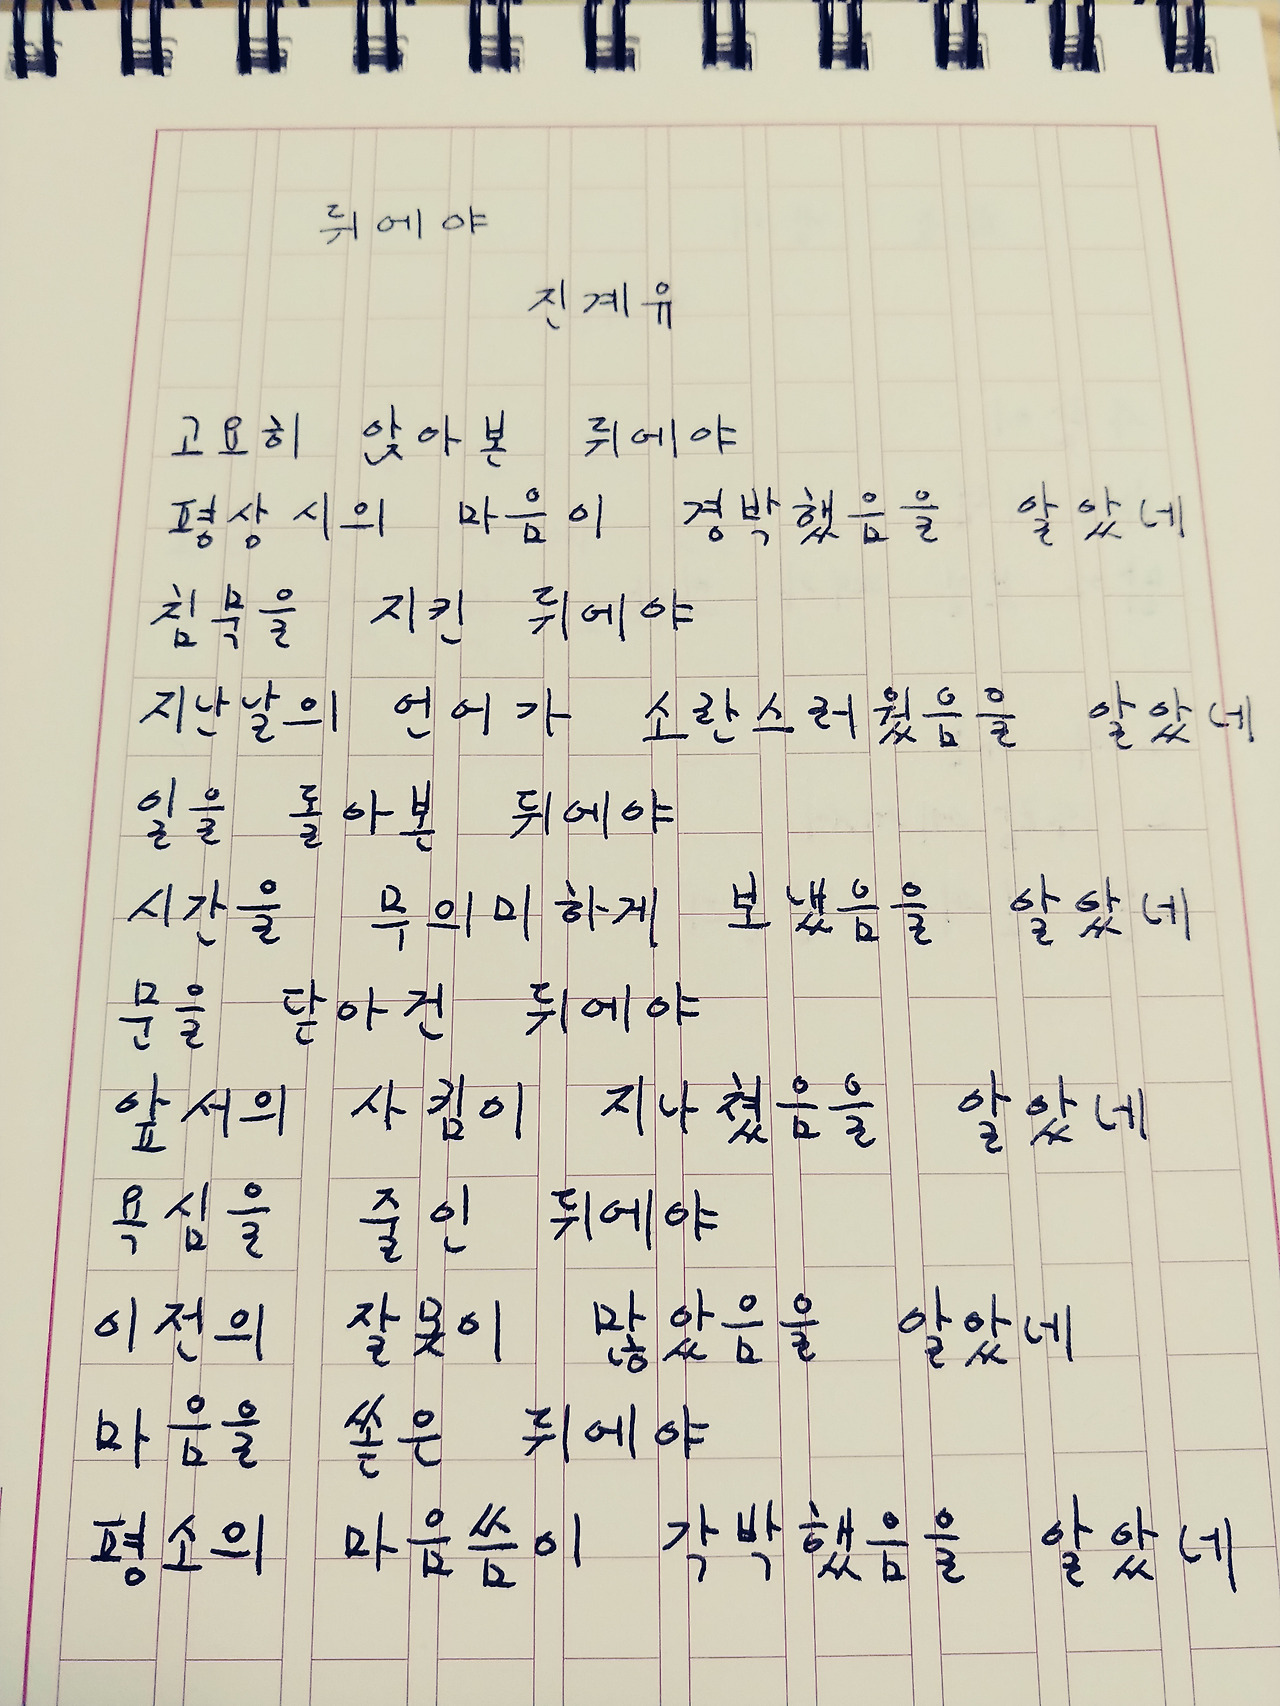 뒤에야
진계유
고요히 앉아본 뒤에야
평상시의 마음이 경박했음을 알았네
침묵을 지킨 뒤에야
지난날의 언어가 소란스러웠음을 알았네
일을 돌아본 뒤에야
시간을 무의미하게 보냈음을 알았네
문을 닫아건 뒤에야
앞서의 사귐이 지나쳤음을 알았네
욕심을 줄인 뒤에야
이전의 잘못이 많았음을 알았네
마음을 쏟은 뒤에야
평소의 마음씀이 각박했음을 알았네